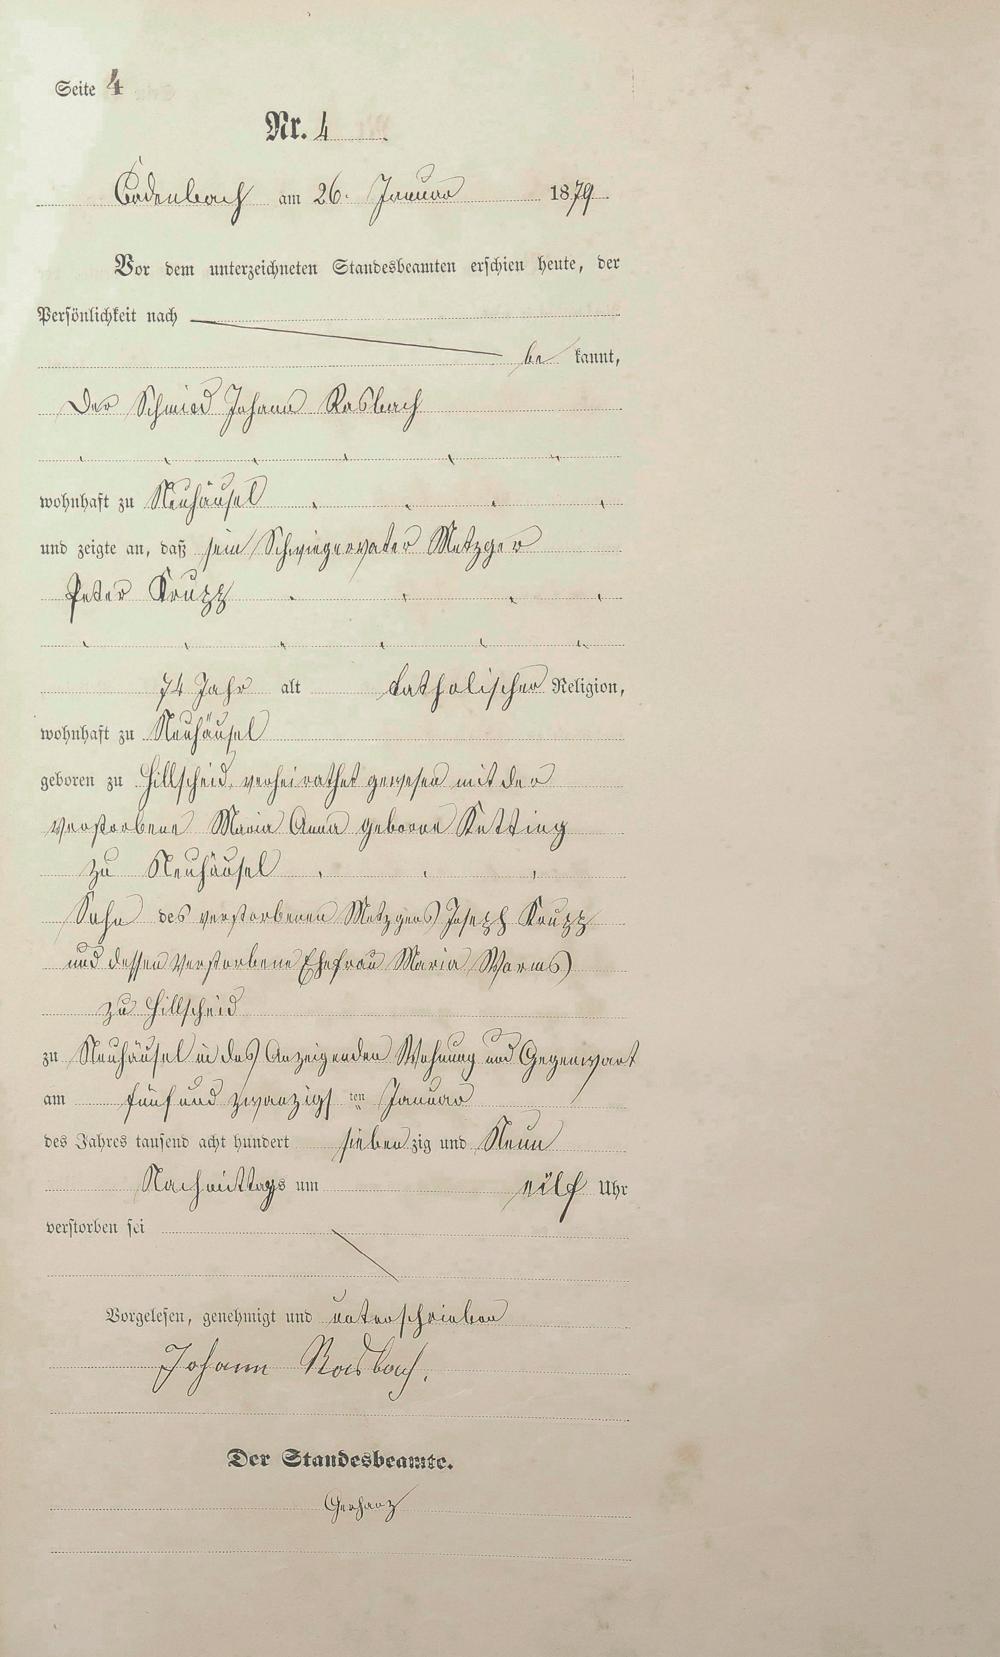 Seite 4
Nr. 4
Cadenbach am 26. Januar 1879.
Vor dem unterzeichneten Standesbeamten erschien heute, der
Persönlichkeit nach
be kannt,
Der Schmied Johann Rasbach
wohnhaft zu Neuhäusel
und zeigte an, daß sein Schwiegervater Metzger
Peter Krupp
74 Jahr alt katholischer Religion,
wohnhaft zu Neuhäusel
geboren zu Hillscheid, verheirathet gewesen mit der
verstorbene Maria Anna geborne Ketting
zu Neuhäusel
Sohn des verstorbenen Metzgers Joseph Krupp
und dessen verstorbene Ehefrau Maria Worms
zu Hillscheid
zu Neuhäusel in des Anzeigenden Wohnung und Gegenwart
am fünf und zwanzigs ten Januar
des Jahres tausend acht hundert sieben zig und Neun
Nachmittags um eilf Uhr
verstorben sei
Vorgelesen, genehmigt und unterschrieben
Johann Rasbach.
Der Standesbeamte.
Gerharz